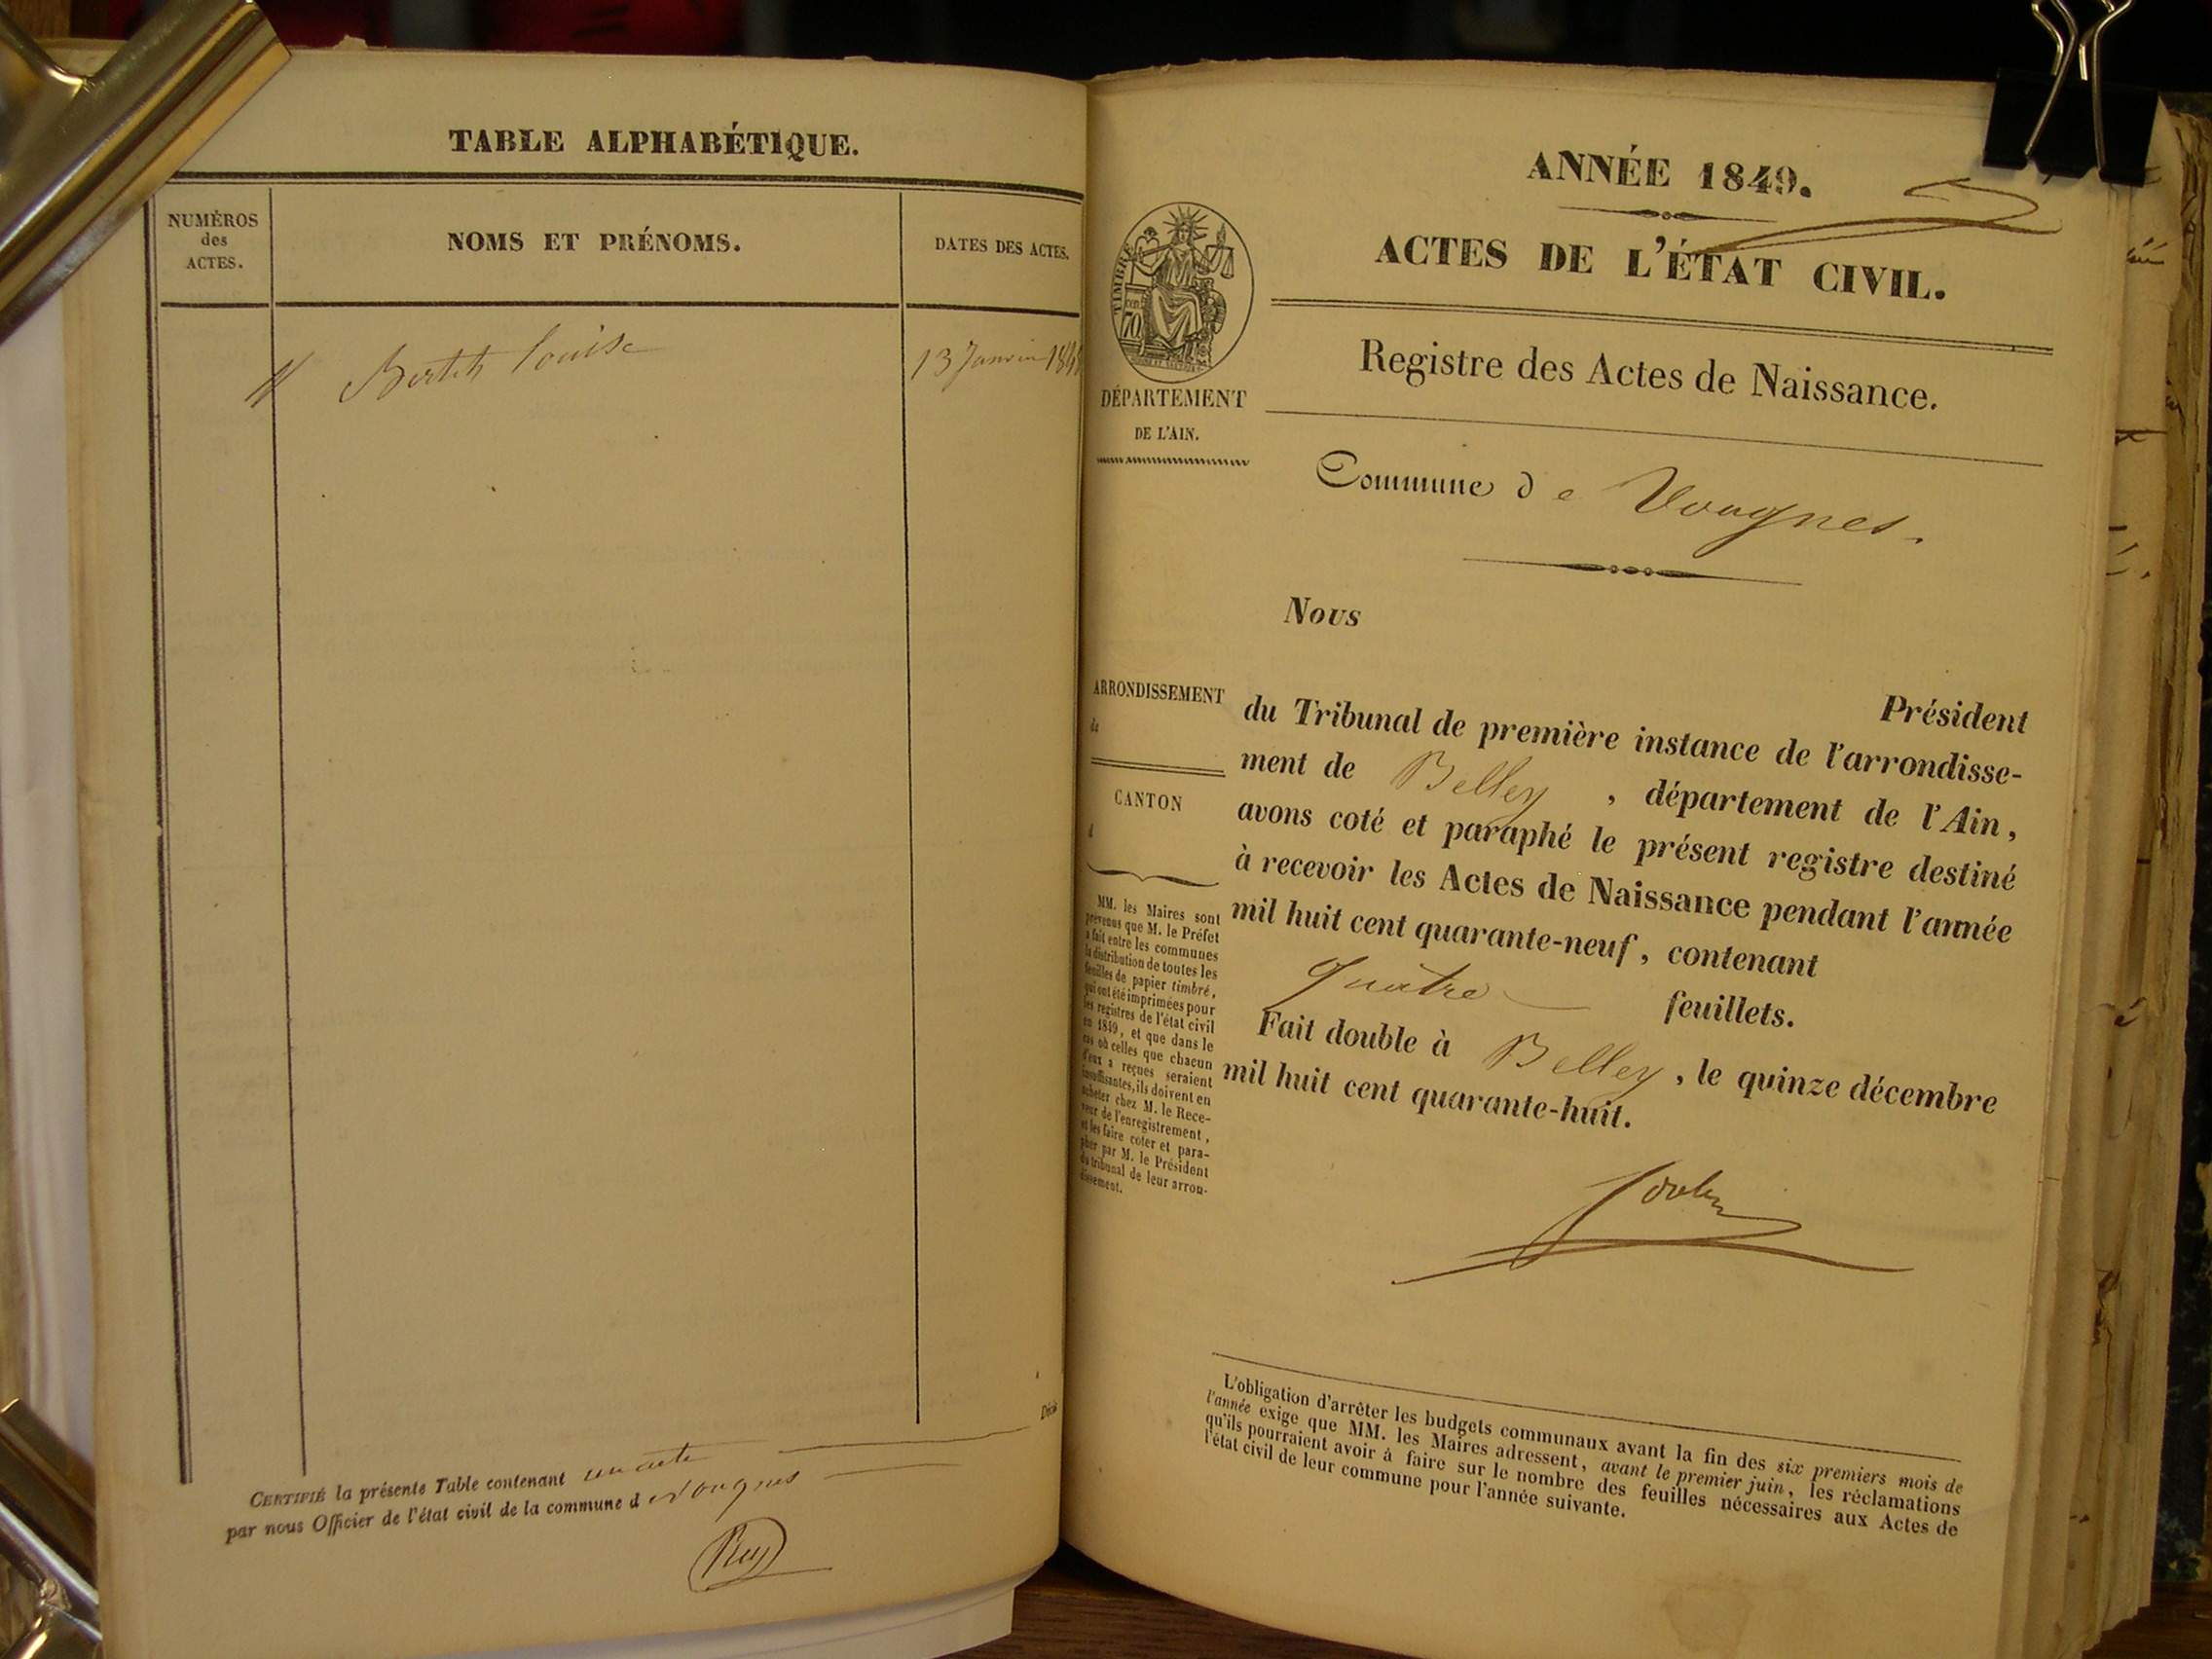 TABLE ALPHABÉTIQUE.
NUMÉROS
des
ACTES.
NOMS ET PRÉNOMS.
DATES DES ACTES.
Louise
13 Janvier
CERTIFIÉ la présente Table contenant un acte
par nous Officier de l'état civil de la commune d e Vougnes
ANNÉE 1849.
ACTES DE L'ÉTAT CIVIL.
TIMBRE
70
DÉPARTEMENT
DE L'AIN.
Registre des Actes de Naissance.
Commune de Vougnes.
Nous
Président
ARRONDISSEMENT
de
CANTON
d
du Tribunal de première instance de l'arrondisse-
ment de Belley, département de l'Ain,
avons coté et paraphé le présent registre destiné
à recevoir les Actes de Naissance pendant l'année
mil huit cent quarante-neuf, contenant
quatre feuillets.
Fait double à Belley, le quinze décembre
mil huit cent quarante-huit.
MM. les Maires sont
prévenus que M. le Préfet
a fait entre les communes
la distribution de toutes les
feuilles de papier timbré,
qui ont été imprimées pour
les registres de l'état civil
en 1849, et que dans le
cas où celles que chacun
d'eux a reçues seraient
insuffisantes, ils doivent en
acheter chez M. le Rece-
veur de l'enregistrement,
et les faire coter et para-
pher par M. le Président
du tribunal de leur arron-
dissement.
L'obligation d'arrêter les budgets communaux avant la fin des six premiers mois de
l'année exige que MM. les Maires adressent, avant le premier juin, les réclamations
qu'ils pourraient avoir à faire sur le nombre des feuilles nécessaires aux Actes de
l'état civil de leur commune pour l'année suivante.